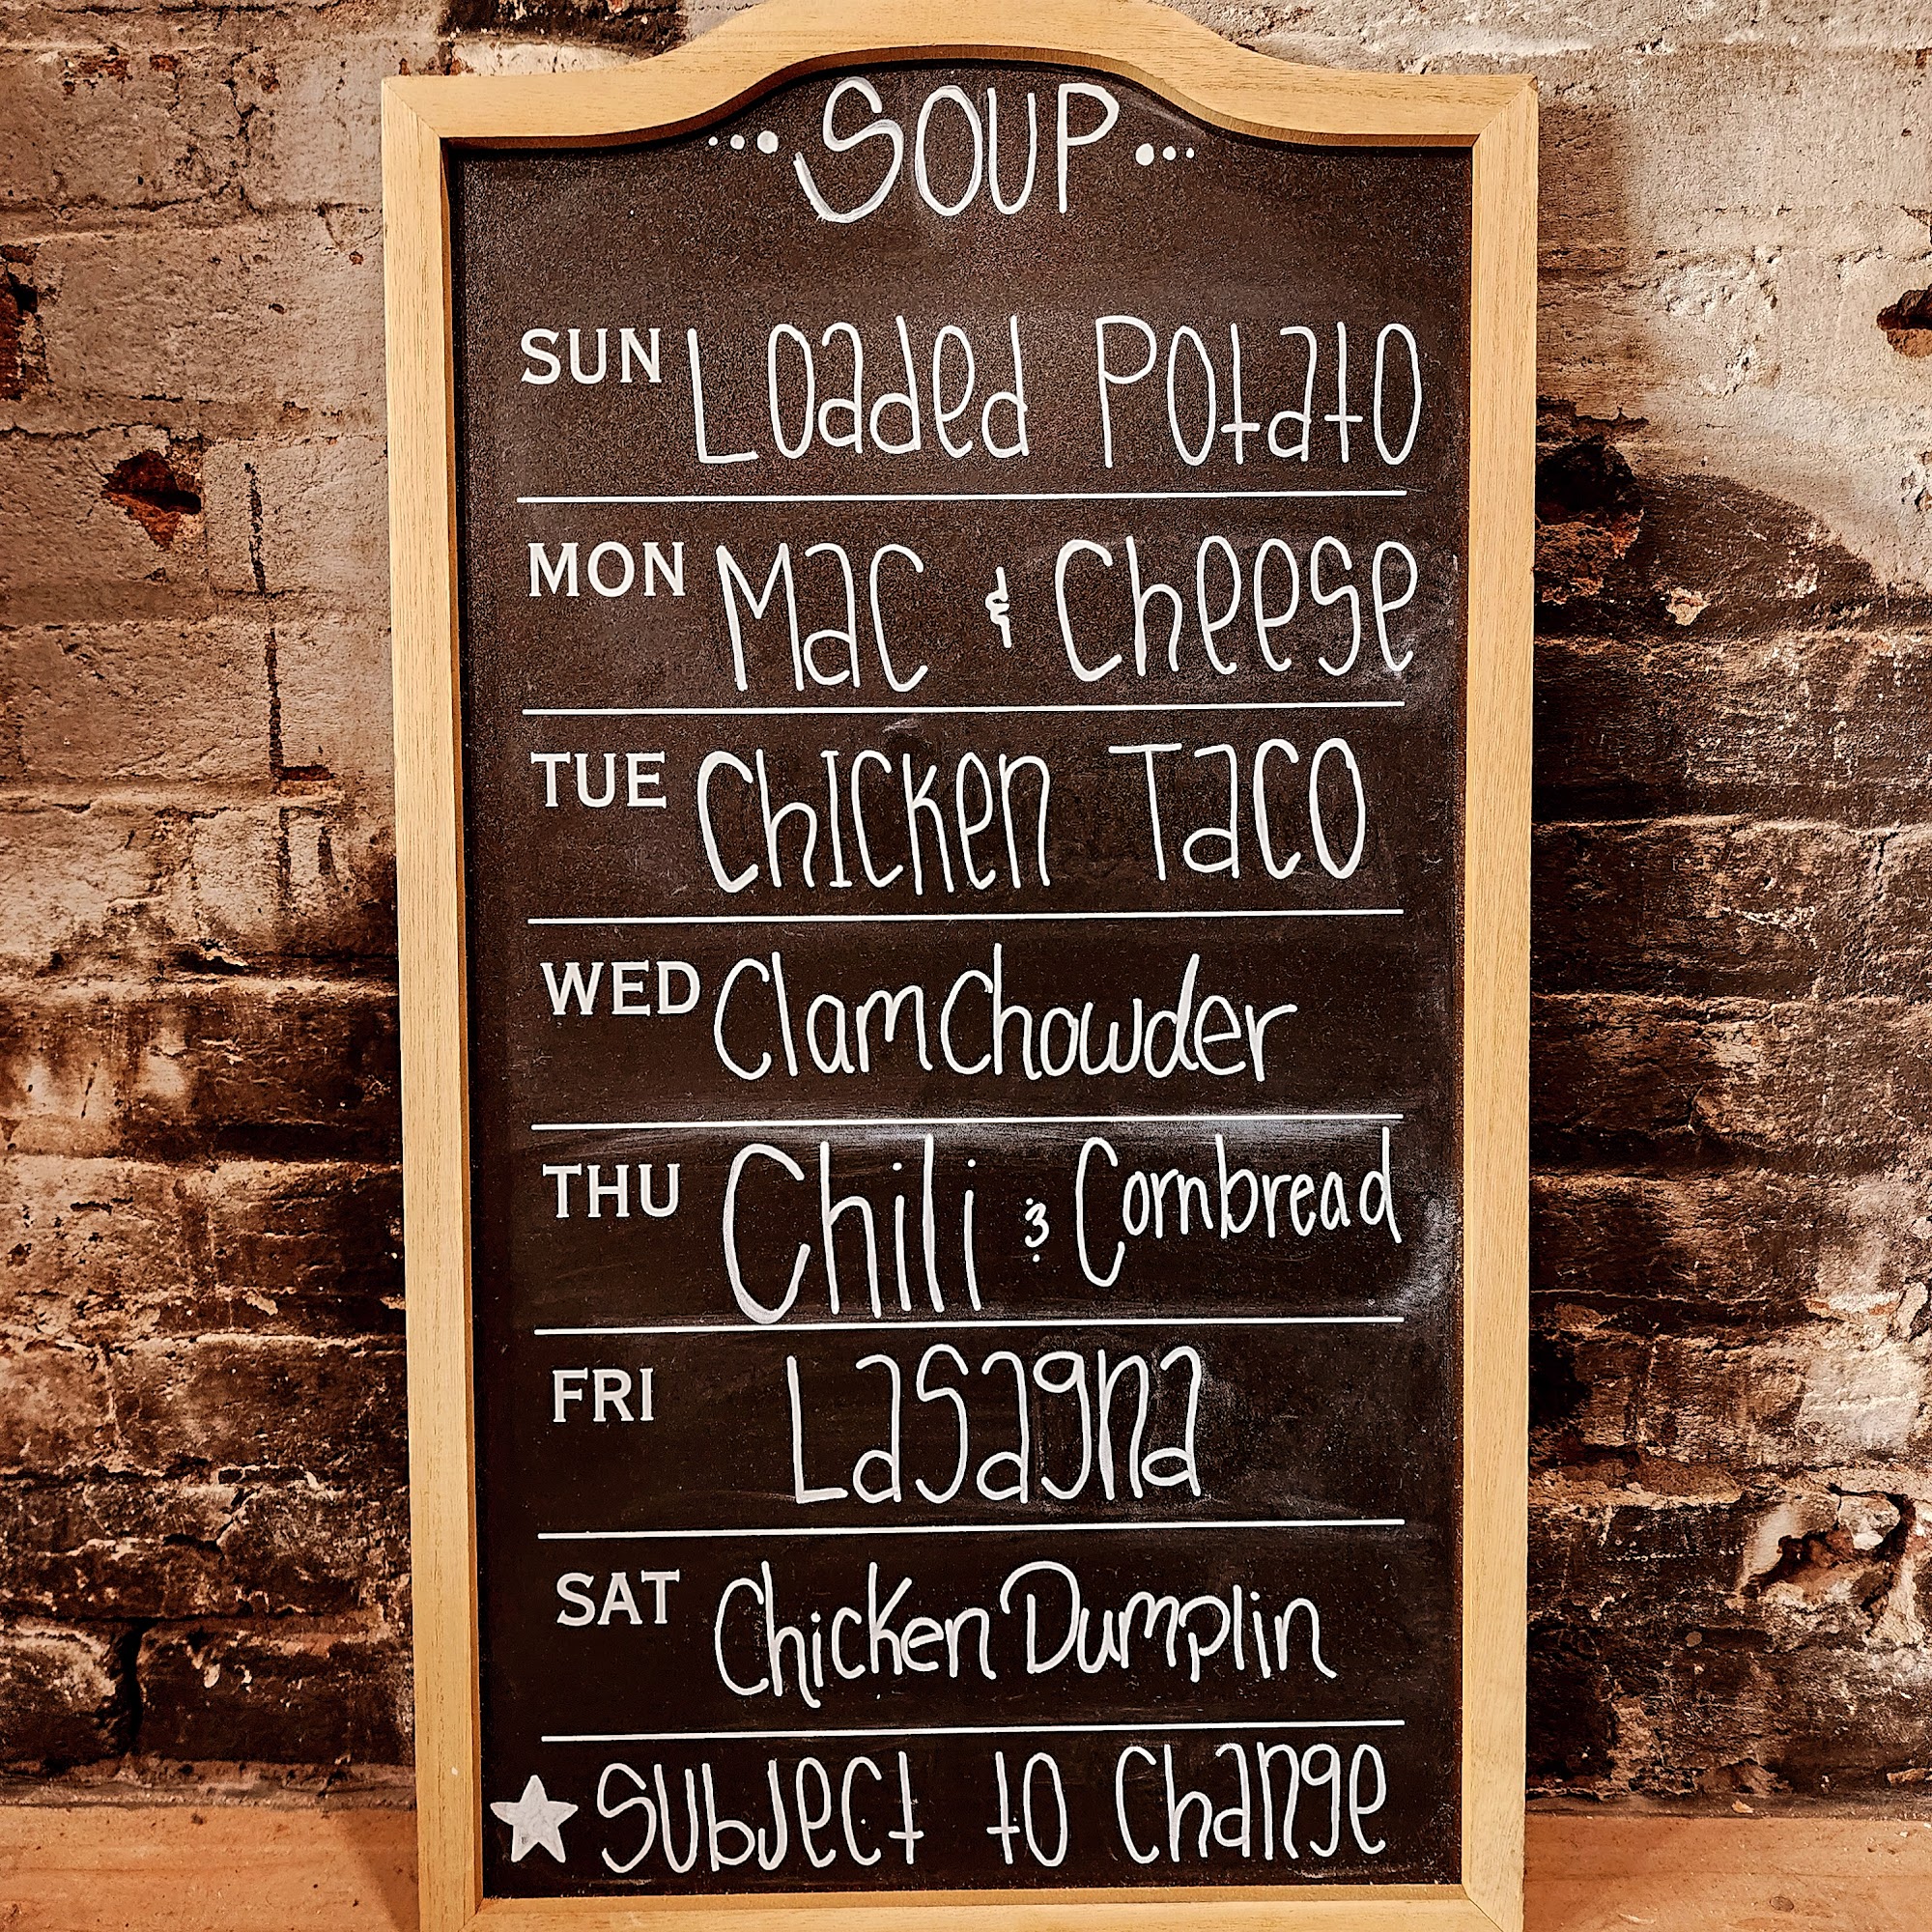 ...SOUP...
SUN Loaded Potato
MON Mac & Cheese
TUE Chicken Taco
WED Clam Chowder
THU Chili & Cornbread
FRI Lasagna
SAT Chicken Dumplin
★ Subject to Change